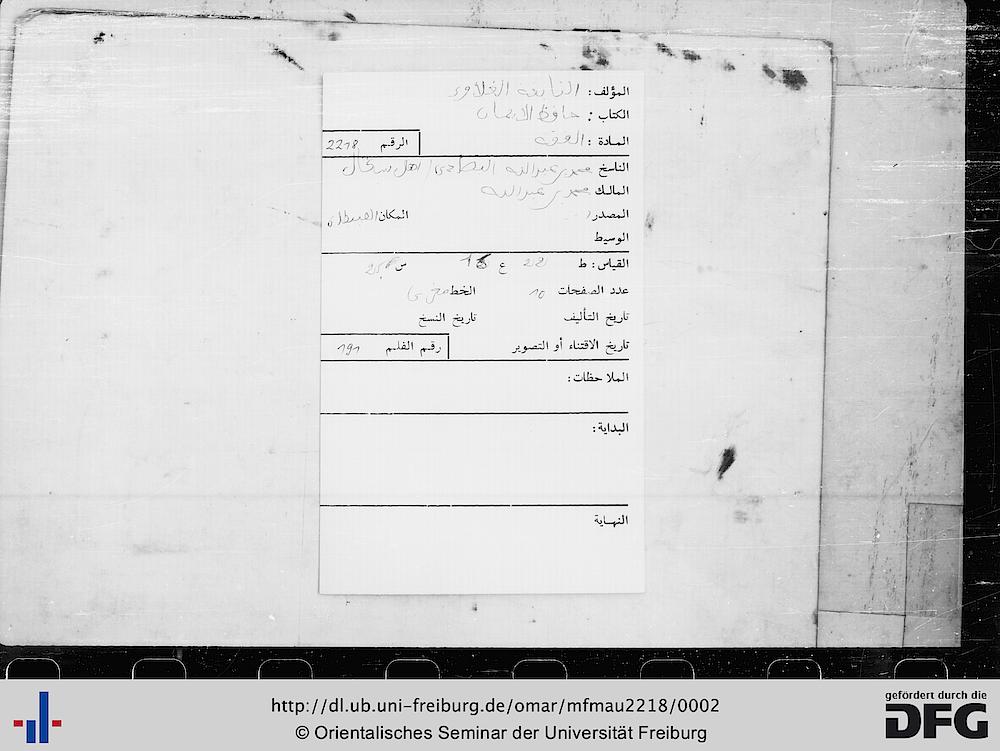 المؤلف: النابغه الغلاوي
الكتاب:
المادة: الفقه
الرقم 2218
الناسخ محمد بن عبد الله
المالك محمد بن عبد الله
المصدر
المكان
الوسيط
القياس: ط 22 ع س
عدد الصفحات 10 الخط مغربي
تاريخ التأليف تاريخ النسخ
تاريخ الاقتناء أو التصوير رقم الفلم 191
الملاحظات:
البداية:
النهاية
http://dl.ub.uni-freiburg.de/omar/mfmau2218/0002
© Orientalisches Seminar der Universität Freiburg
gefördert durch die
DFG